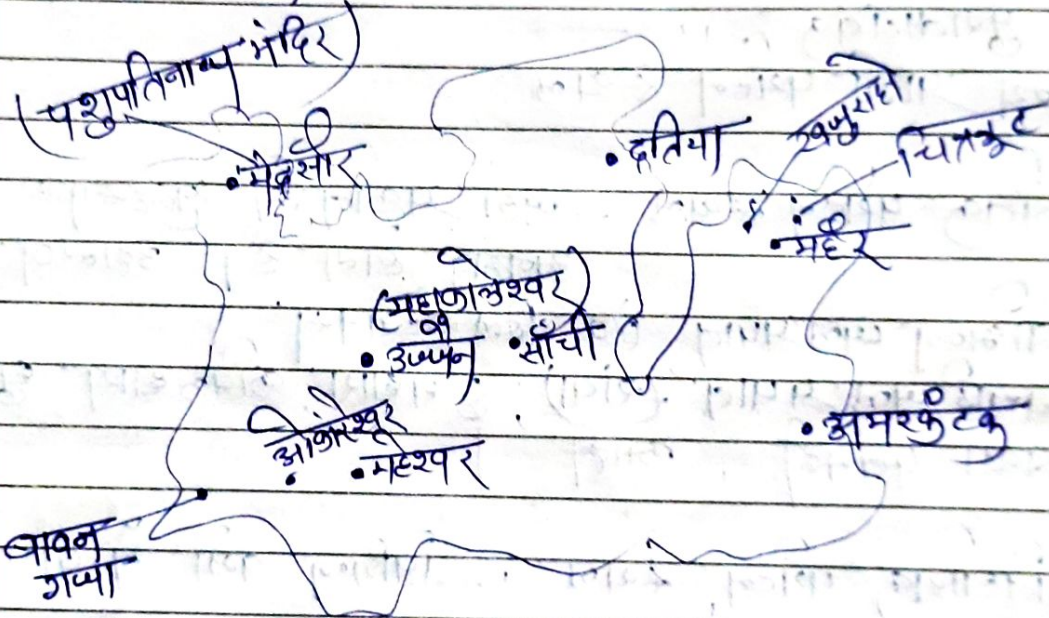 (पशुपतिनाथ मंदिर)
मंदसौर
दतिया
खजुराहो
चित्रकूट
मैहर
(महाकालेश्वर)
उज्जैन
साँची
ओंकारेश्वर
महेश्वर
अमरकंटक
बावन
गजा